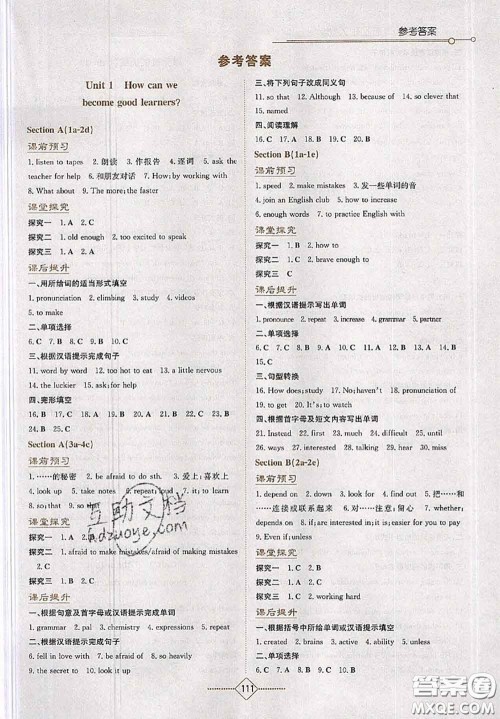 参考答案
参考答案
Unit 1 How can we
become good learners?
Section A(1a-2d)
课前预习
1. listen to tapes 2. 朗读 3. 作报告 4. 逐词 5. ask the
teacher for help 6. 和朋友对话 7. How; by working with
8. What about 9. The more; the faster
课堂探究
探究一 1. A 2. C
探究二 1. old enough 2. too excited to speak
探究三 C
课后提升
一、用所给词的适当形式填空
1. pronunciation 2. climbing 3. study 4. videos
5. to make
二、单项选择
6. C 7. D 8. A 9. B 10. C
三、根据汉语提示完成句子
11. word by word 12. too hot to eat 13. a little nervous
14. the luckier 15. ask; for help
四、完形填空
16. B 17. A 18. D 19. C 20. D 21. A 22. B 23. D
24. B 25. C
Section A(3a-4c)
课前预习
1. ……的秘密 2. be afraid to do sth. 3. 爱上;喜欢上
4. look up 5. take notes 6. repeat; loud 7. it; to learn
8. so; that
课堂探究
探究一 C
探究二 1. afraid to make mistakes/afraid of making mistakes
2. C
探究三 C
课后提升
一、根据句意及首字母或汉语提示完成单词
1. grammar 2. pal 3. chemistry 4. expressions 5. repeat
二、根据汉语提示完成句子
6. fell in love with 7. are afraid to 8. looking; up
9. the secret to 10. look
三、将下列句子改成同义句
11. so that 12. Although 13. because of 14. so that
15. named
四、阅读理解
16. C 17. A 18. C 19. B 20. D
Section B(1a-1e)
课前预习
1. speed 2. make mistakes 3. 发一些单词的音
4. join an English club 5. how to increase
6. quickly enough 7. to practice English with
课堂探究
探究一 1. B 2. how to
探究二 1. C 2. brave enough to
探究三 C
课后提升
一、根据汉语提示写出单词
1. pronounce 2. repeat 3. increase 4. grammar 5. partner
二、单项选择
6. C 7. B 8. B 9. B 10. A 11. B 12. C 13. B 14. D
15. D
三、句型转换
16. How does; study 17. No; haven't 18. pronunciation of
19. to get 20. It's; to watch
四、根据首字母及短文内容写出单词
21. Instead 22. first 23. must 24. difficult 25. of
26. ways 27. interested 28. talking 29. hear 30. miss
Section B(2a-2e)
课前预习
1. depend on 2. down 3. looked for 4. on 5. 把……和……
连接或联系起来 6. 对……注意;留心 7. whether;
depends on 8. be afraid of
9. Even if; unless
课堂探究
探究一 1. C 2. B
探究二 C
探究三 1. C 2. working hard
课后提升
一、根据括号中所给单词或汉语提示填空
1. created 2. brains 3. active 4. ability 5. unless
二、单项选择
6. D 7. A 8. C 9. A 10. C
111
互助文档
hdzuoye.com
答案圈
MXQE.COM